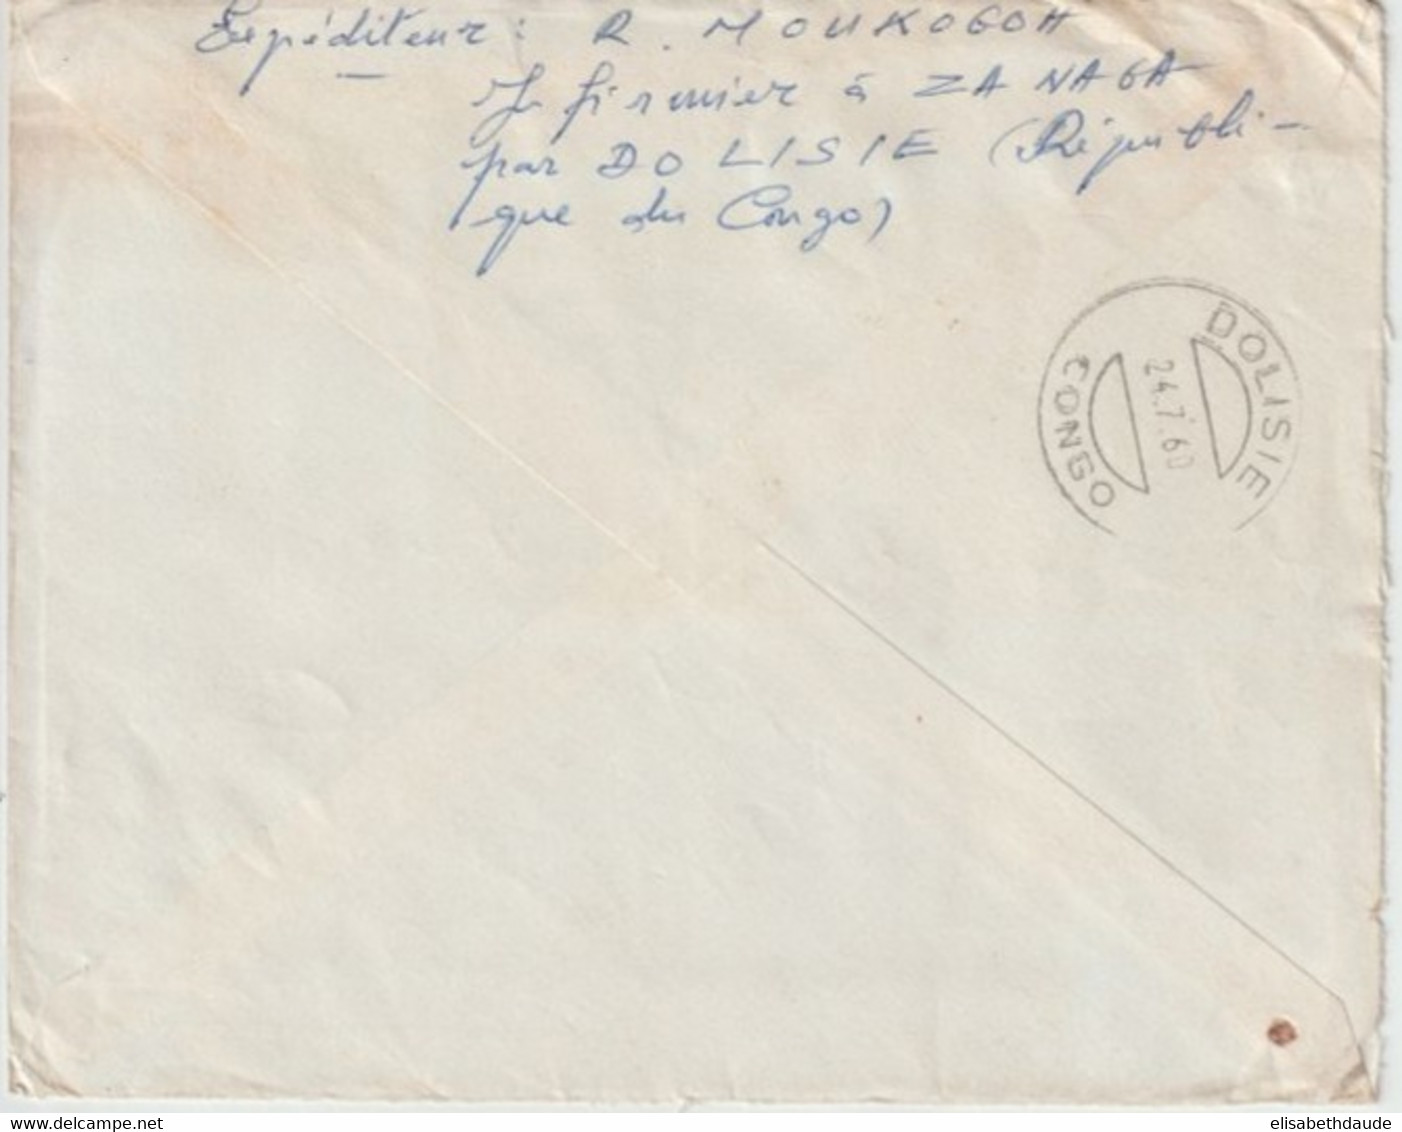 Expéditeur : R. MOUKOGOH
Infirmier à ZANAGA
par DOLISIE (Républi-
que du Congo)
DOLISIE
24.7.60
CONGO
www.delcampe.net
elisabethdaude